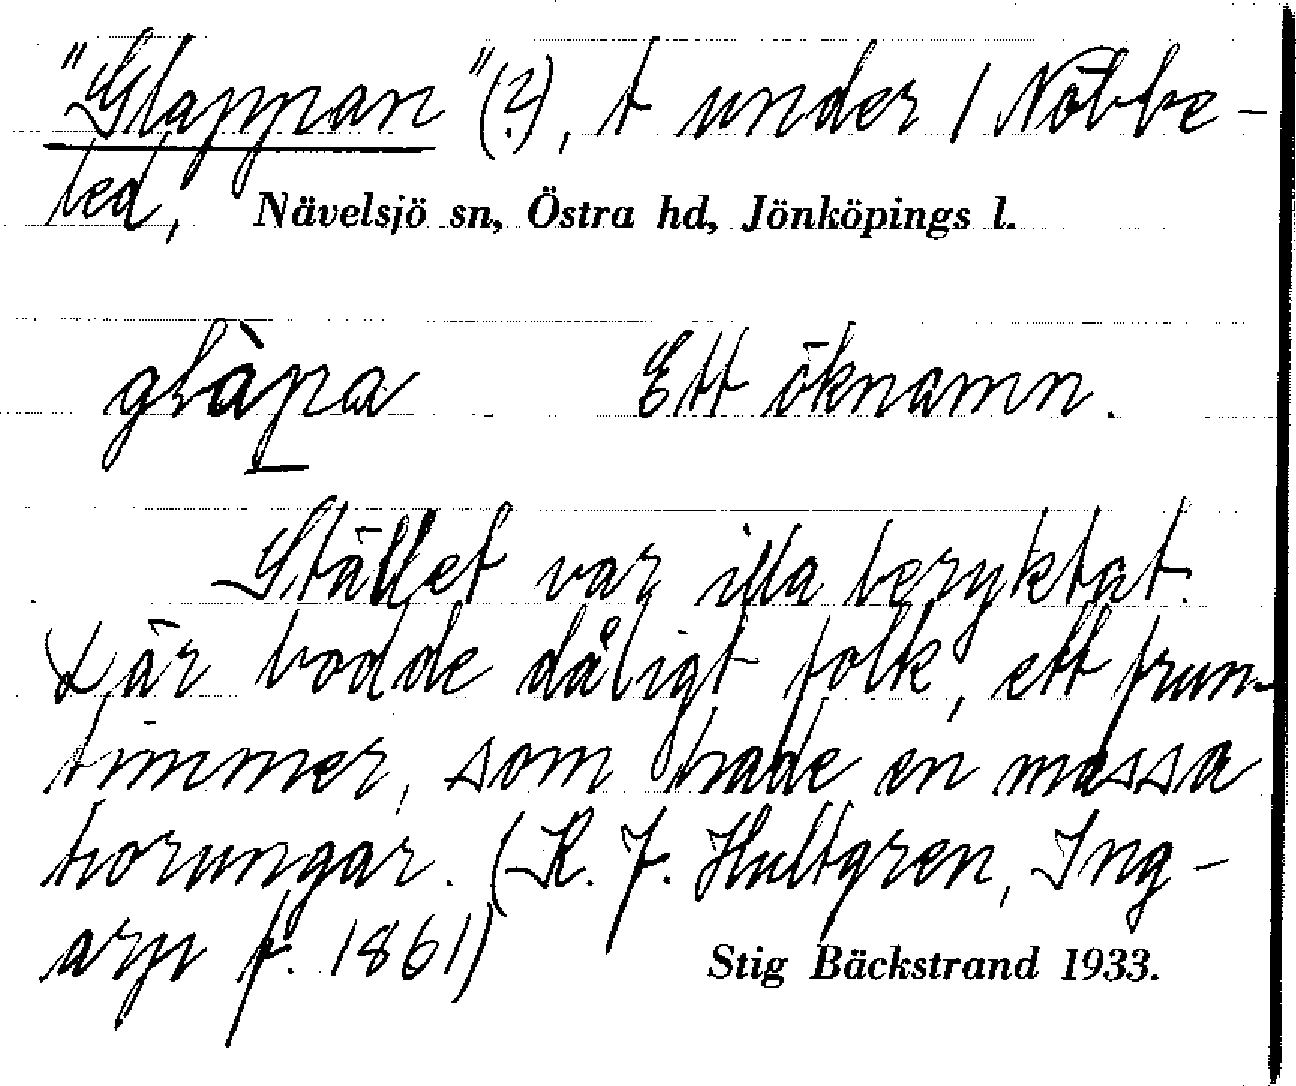 "Glappan" (?), t under 1 Nöbbe-
led, Nävelsjö sn, Östra hd, Jönköpings l.
glàpa Ett öknamn.
Stället var illa beryktat.
Där bodde dåligt folk, ett frun-
timmer, som hade en massa
horungar. (K. J. Hultgren, Ing-
arp f. 1861)
Stig Bäckstrand 1933.